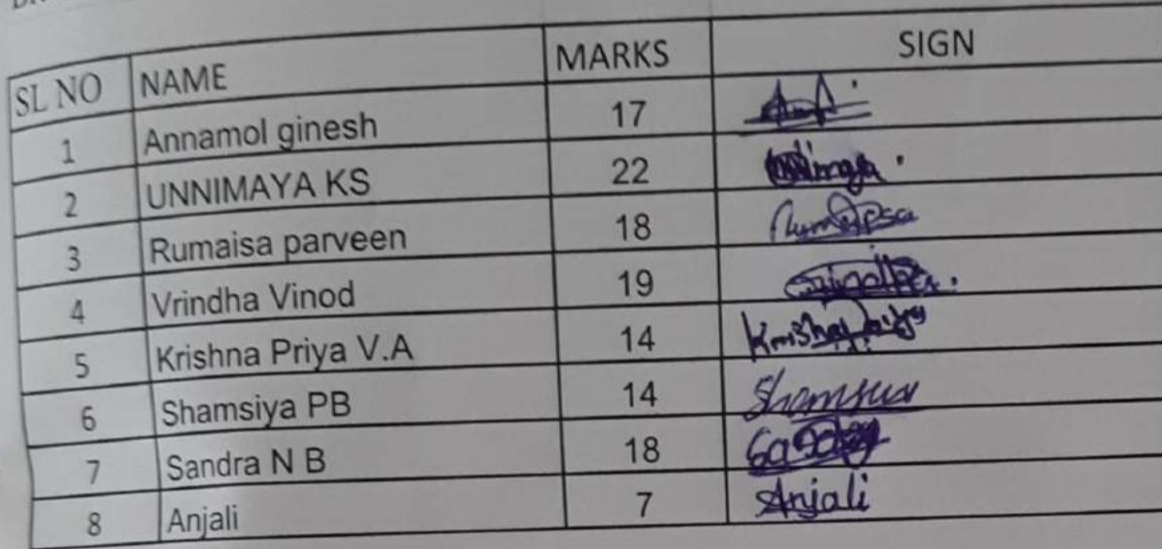 SL NO NAME MARKS SIGN
1 Annamol ginesh 17
2 UNNIMAYA KS 22
3 Rumaisa parveen 18
4 Vrindha Vinod 19
5 Krishna Priya V.A 14 Krishnapriya
6 Shamsiya PB 14
7 Sandra N B 18
8 Anjali 7 Anjali